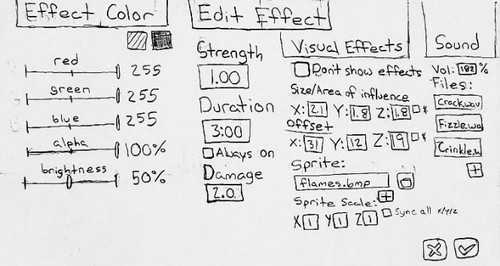 Effect Color
red 255
green 255
blue 255
alpha 100%
brightness 50%
Edit Effect
Strength
1.00
Duration
3:00
Always on
Damage
2.0
Visual Effects
Don't show effects
Size/Area of influence
X: 2.1 Y: 1.8 Z: 1.8 *
Offset
X: 31 Y: 12 Z: 19 *
Sprite:
flames.bmp
Sprite Scale:
X 1 Y 1 Z 1 Sync all x/y/z
Sound
Vol: %
Files:
Crack.wav
Fizzle.wa
Crinkle.w